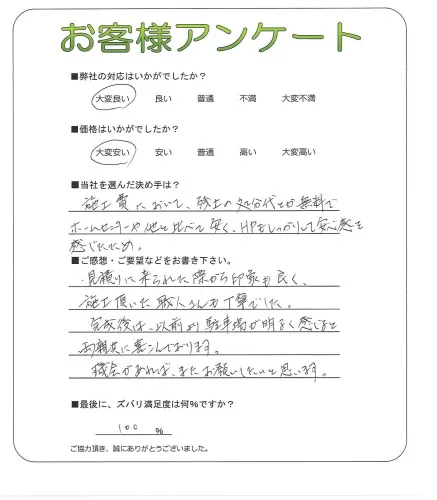 お客様アンケート
■弊社の対応はいかがでしたか？
大変良い 良い 普通 不満 大変不満
■価格はいかがでしたか？
大変安い 安い 普通 高い 大変高い
■当社を選んだ決め手は？
施工費において、残土の処分代とが無料で
ホームセンターや他と比べて安く、HPもしっかりして安心感を
感じたため。
■ご感想・ご要望などをお書き下さい。
見積りに来られた際から印象も良く、
施工頂いた職人さんも丁寧でした。
完成後は、以前より駐車場が明るく感じると
両親共に喜こんでおります。
機会があれば、またお願いしたいと思います。
■最後に、ズバリ満足度は何%ですか？
100 %
ご協力頂き、誠にありがとうございました。